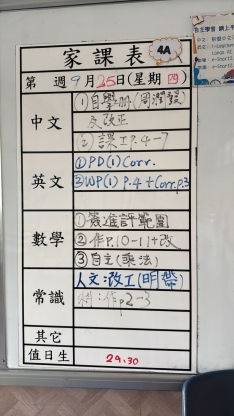 家課表
4A
第 週 9月25日(星期四)
中文
①自學冊(周潤發)
及改正
②課工P.4-7
英文
①PD(1)Corr.
②WP(1) P.4+Corr.p.3
數學
①簽進評範圍
②作P.10-11+改
③自主(乘法)
常識
人文:改工(明帶)
科:作p2-3
其它
值日生
29.30